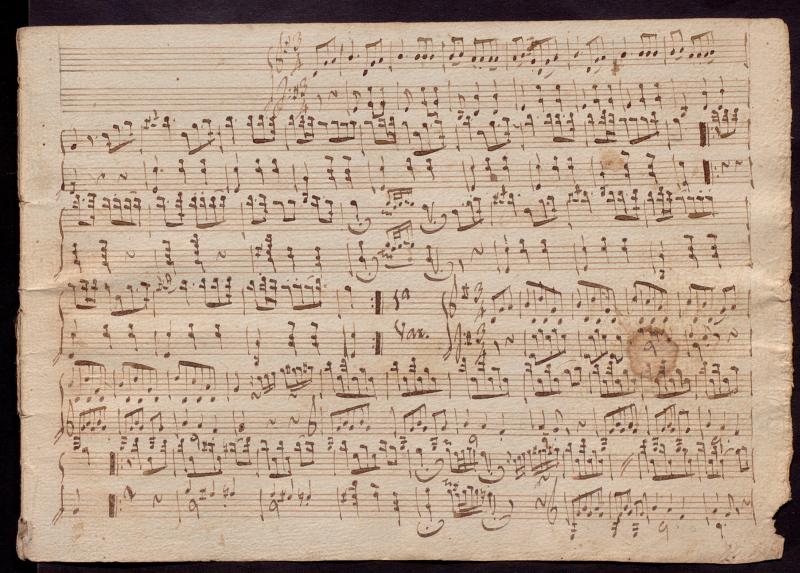 5a
Var.